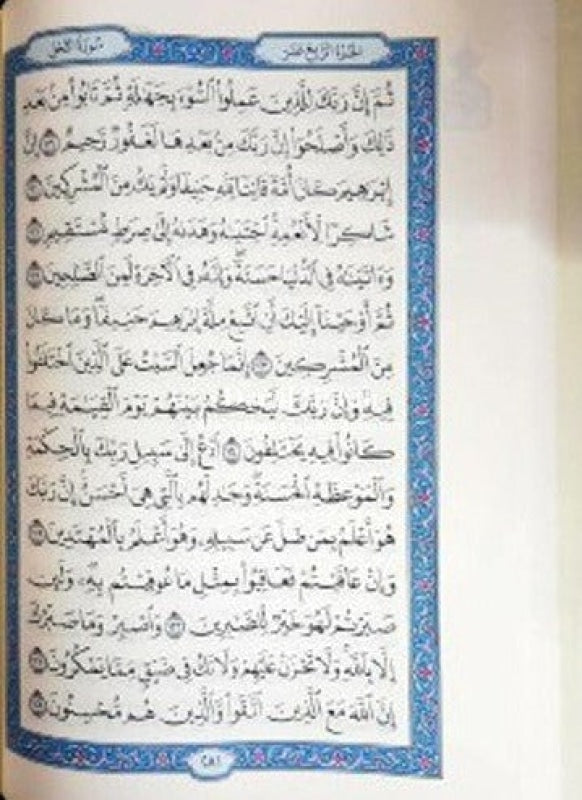 سورة النحل
الجزء الرابع عشر
ثُمَّ إِنَّ رَبَّكَ لِلَّذِينَ عَمِلُوا۟ ٱلسُّوٓءَ بِجَهَـٰلَةٍ ثُمَّ تَابُوا۟ مِنۢ بَعْدِ
ذَٰلِكَ وَأَصْلَحُوٓا۟ إِنَّ رَبَّكَ مِنۢ بَعْدِهَا لَغَفُورٌ رَّحِيمٌ ١١٩ إِنَّ
إِبْرَٰهِيمَ كَانَ أُمَّةً قَانِتًا لِّلَّهِ حَنِيفًا وَلَمْ يَكُ مِنَ ٱلْمُشْرِكِينَ ١٢٠
شَاكِرًا لِّأَنْعُمِهِ ٱجْتَبَىٰهُ وَهَدَىٰهُ إِلَىٰ صِرَٰطٍ مُّسْتَقِيمٍ ١٢١
وَءَاتَيْنَـٰهُ فِى ٱلدُّنْيَا حَسَنَةً وَإِنَّهُۥ فِى ٱلْـَٔاخِرَةِ لَمِنَ ٱلصَّـٰلِحِينَ ١٢٢
ثُمَّ أَوْحَيْنَآ إِلَيْكَ أَنِ ٱتَّبِعْ مِلَّةَ إِبْرَٰهِيمَ حَنِيفًا وَمَا كَانَ
مِنَ ٱلْمُشْرِكِينَ ١٢٣ إِنَّمَا جُعِلَ ٱلسَّبْتُ عَلَى ٱلَّذِينَ ٱخْتَلَفُوا۟
فِيهِ وَإِنَّ رَبَّكَ لَيَحْكُمُ بَيْنَهُمْ يَوْمَ ٱلْقِيَـٰمَةِ فِيمَا
كَانُوا۟ فِيهِ يَخْتَلِفُونَ ١٢٤ ٱدْعُ إِلَىٰ سَبِيلِ رَبِّكَ بِٱلْحِكْمَةِ
وَٱلْمَوْعِظَةِ ٱلْحَسَنَةِ وَجَـٰدِلْهُم بِٱلَّتِى هِىَ أَحْسَنُ إِنَّ رَبَّكَ
هُوَ أَعْلَمُ بِمَن ضَلَّ عَن سَبِيلِهِۦ وَهُوَ أَعْلَمُ بِٱلْمُهْتَدِينَ ١٢٥
وَإِنْ عَاقَبْتُمْ فَعَاقِبُوا۟ بِمِثْلِ مَا عُوقِبْتُم بِهِۦ وَلَئِن
صَبَرْتُمْ لَهُوَ خَيْرٌ لِّلصَّـٰبِرِينَ ١٢٦ وَٱصْبِرْ وَمَا صَبْرُكَ
إِلَّا بِٱللَّهِ وَلَا تَحْزَنْ عَلَيْهِمْ وَلَا تَكُ فِى ضَيْقٍ مِّمَّا يَمْكُرُونَ ١٢٧
إِنَّ ٱللَّهَ مَعَ ٱلَّذِينَ ٱتَّقَوا۟ وَّٱلَّذِينَ هُم مُّحْسِنُونَ ١٢٨
٢٨١